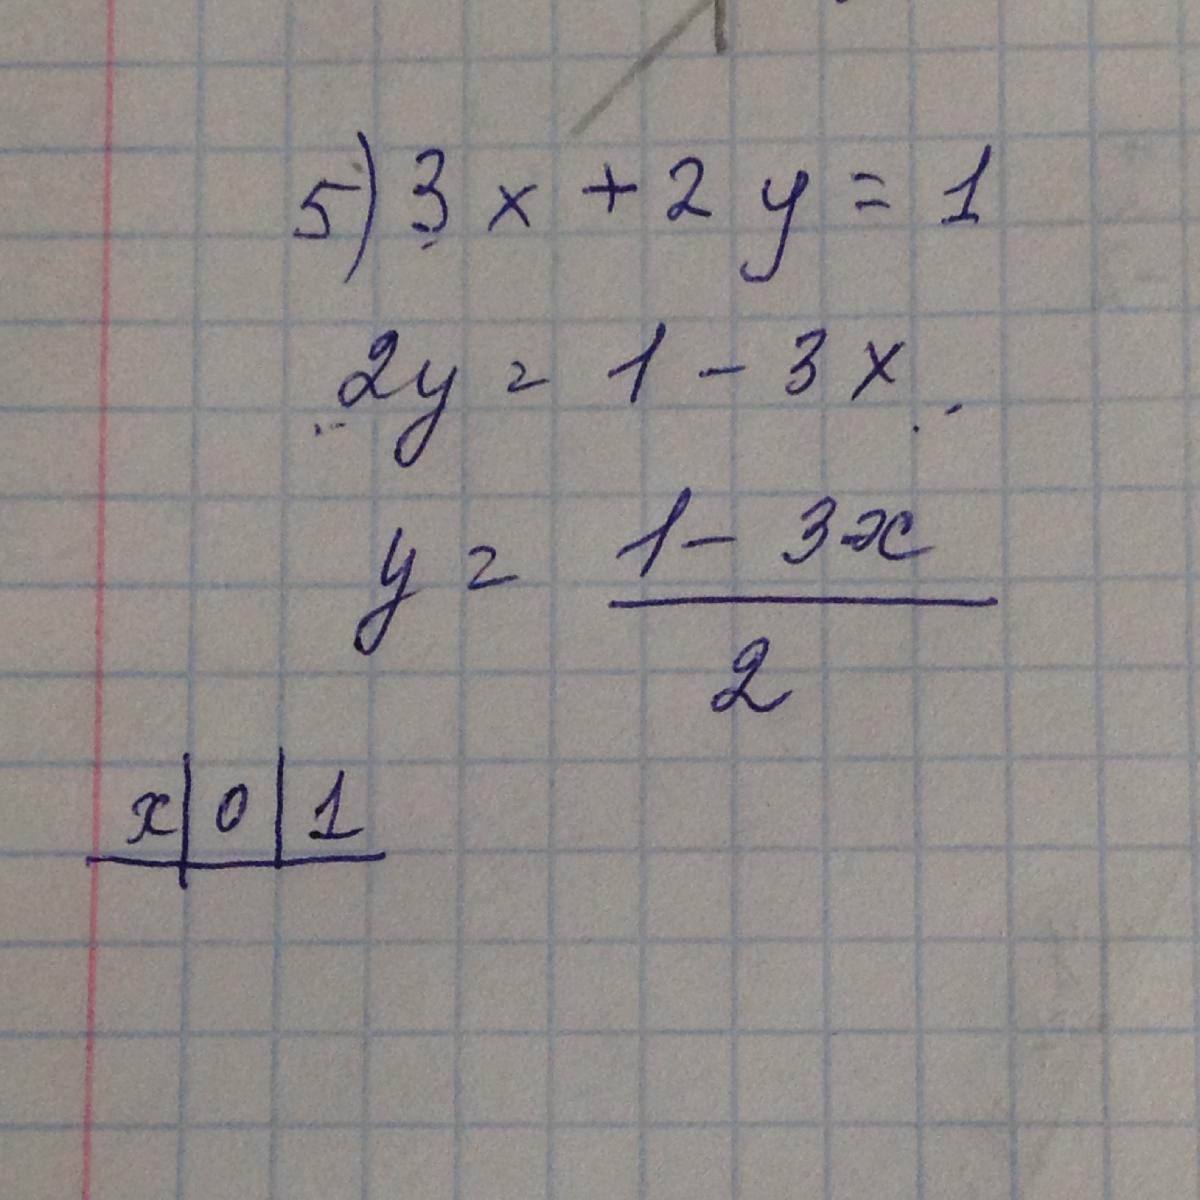 5) 3x + 2y = 1
2y = 1 - 3x
y = \frac{1 - 3x}{2}
x | 0 | 1